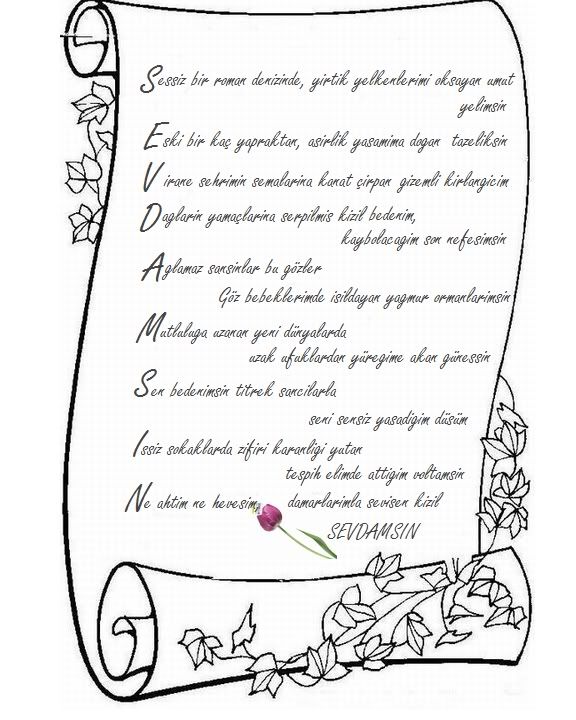 Sessiz bir roman denizinde, yirtik yelkenlerimi oksayan umut
yelimsin
Eski bir kaç yapraktan, asirlik yasamima dogan tazeliksin
Virane sehrimin semalarina kanat çirpan gizemli kirlangicim
Daglarin yamaçlarina serpilmis kizil bedenim,
kaybolacagim son nefesimsin
Aglamaz sansinlar bu gözler
Göz bebeklerimde isildayan yagmur ormanlarimsin
Mutluluga uzanan yeni dünyalarda
uzak ufuklardan yüregime akan günessin
Sen bedenimsin titrek sancilarla
seni sensiz yasadigim düsüm
Issiz sokaklarda zifiri karanligi yutan
tespih elimde attigim voltamsin
Ne ahtim ne hevesim, damarlarimla sevisen kizil
SEVDAMSIN